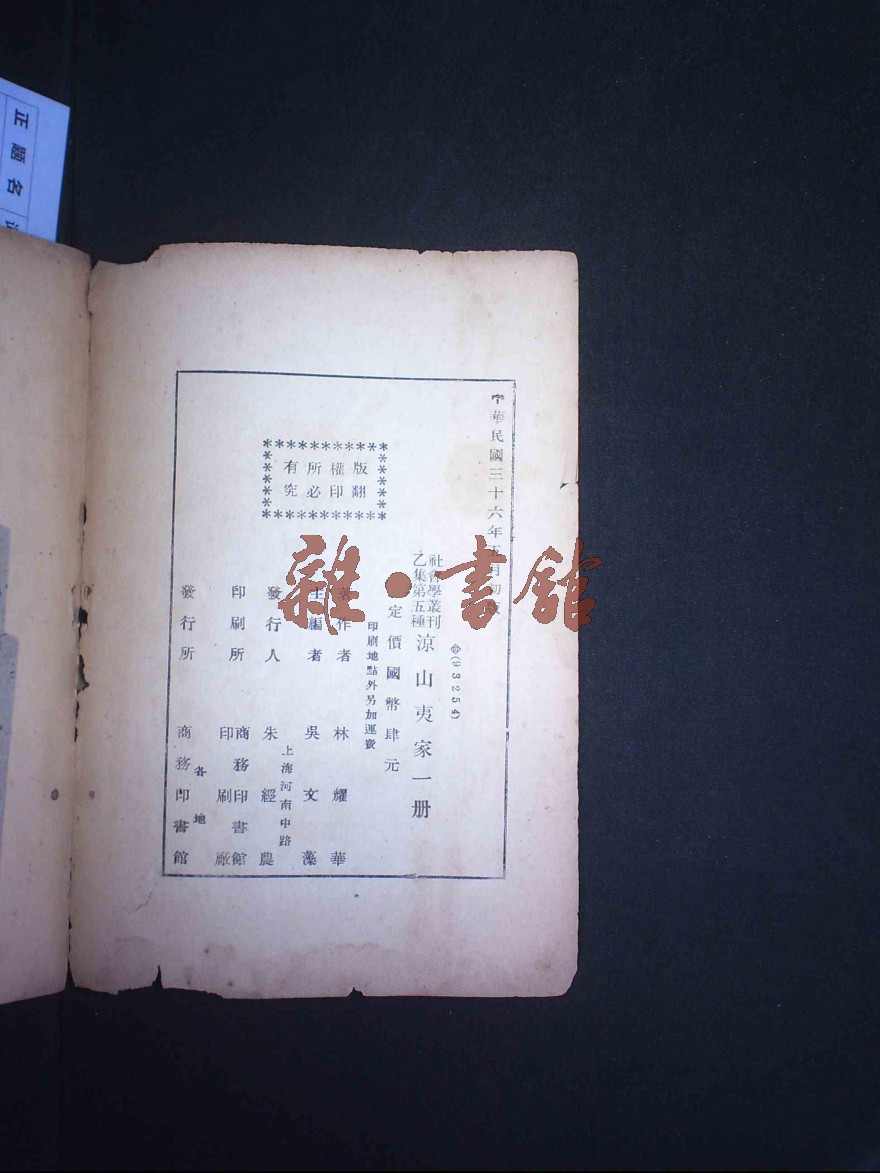 中華民國三十六年五月初版
(93254)
社會學叢刊
乙集第五種
涼山夷家一册
定價國幣肆元
印刷地點外另加運費
版權所有
翻印必究
著作者 林耀華
主編者 吳文藻
發行人 朱經農
上海河南中路
印刷所 商務印書館
印刷廠
發行所 商務印書館
各地
雜·書館
正題名